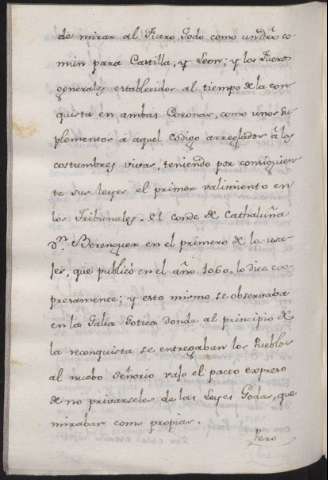 de mirar al Fuero Godo como un dro co
mún para Castilla, y Leon; y los Fueros
generales establecidos al tiempo de la con
quista en ambas Coronas, como unos su
plementos a aquel Codigo arreglados á las
costumbres vivas, teniendo por consiguien
te sus leyes el primer valimiento en
los Tribunales. El conde de Cathaluña
Dn. Berenguer en el primero de los usa
jes, que publicó en el año 1060, lo dice ex
presamente; y esto mismo se observaba
en la Galia Gotica donde al principio de
la reconquista se entregaban los Pueblos
al nuebo señorio vajo el pacto expreso
de no privarseles de las Leyes Godas, que
miraban como propias.
Pero